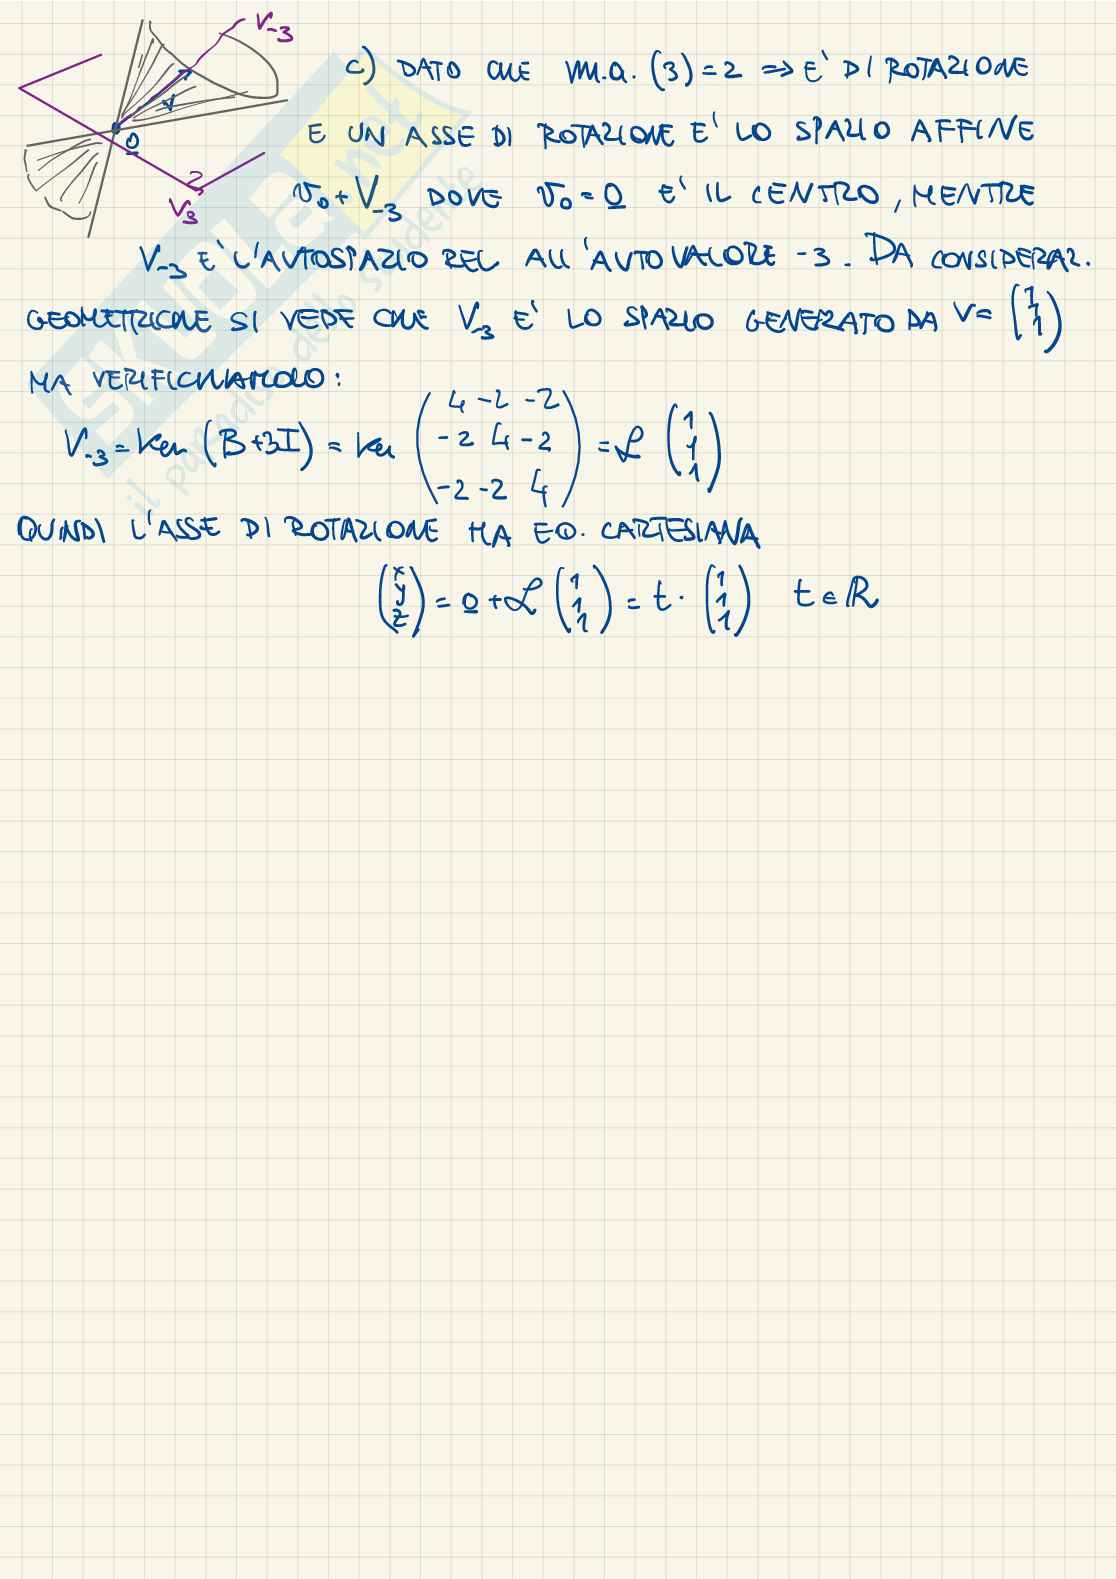 V₋₃
V
0
V₃
c) DATO CHE m.a. (3) = 2 ⇒ E' DI ROTAZIONE
E UN ASSE DI ROTAZIONE E' LO SPAZIO AFFINE
v₀ + V₋₃ DOVE v₀ = 0 E' IL CENTRO, MENTRE
V₋₃ E' L'AUTOSPAZIO REL ALL'AUTOVALORE -3. DA CONSIDERAZ.
GEOMETRICHE SI VEDE CHE V₋₃ E' LO SPAZIO GENERATO DA V= (1 1 1)
MA VERIFICHIAMOLO:
V₋₃ = Ker (B+3I) = Ker (4 -2 -2
-2 4 -2
-2 -2 4) = ℒ (1 1 1)
QUINDI L'ASSE DI ROTAZIONE HA EQ. CARTESIANA
(x y z) = 0 + ℒ (1 1 1) = t · (1 1 1) t ∈ ℝ
SKUOLA.net
il paradiso dello studente